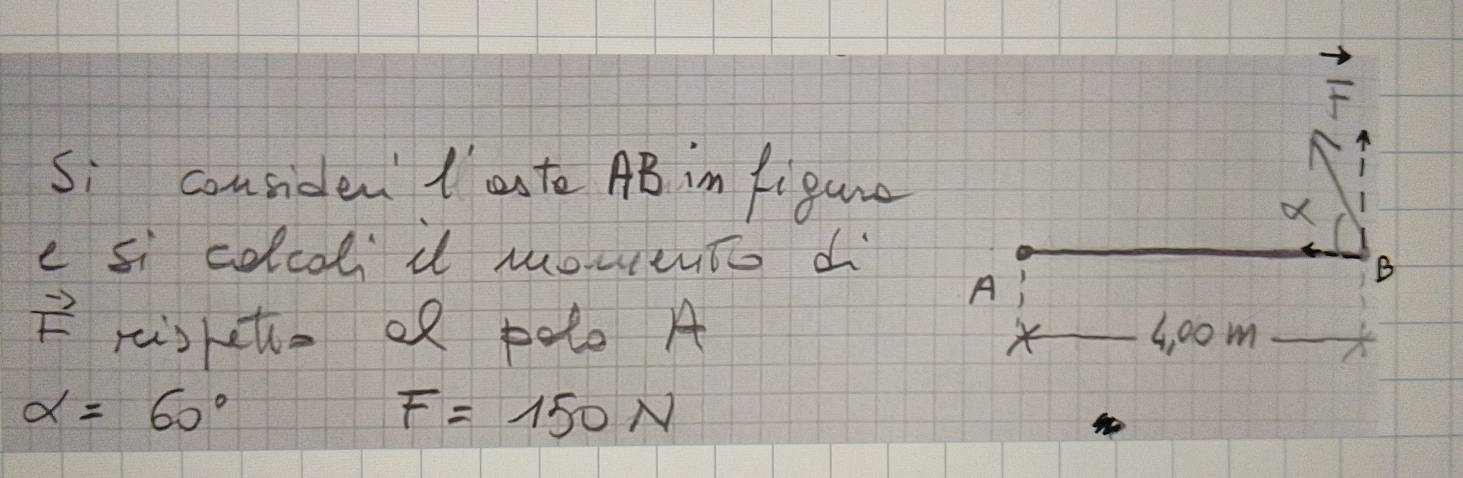 Si consideri l'asta AB in figura
e si calcoli il momento di
F rispetto al polo A
α = 60° F = 150 N
F
α
A
B
4,00 m